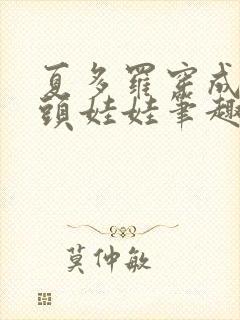 夏多羅穿成
頭娃娃筆趣
莫仲敏